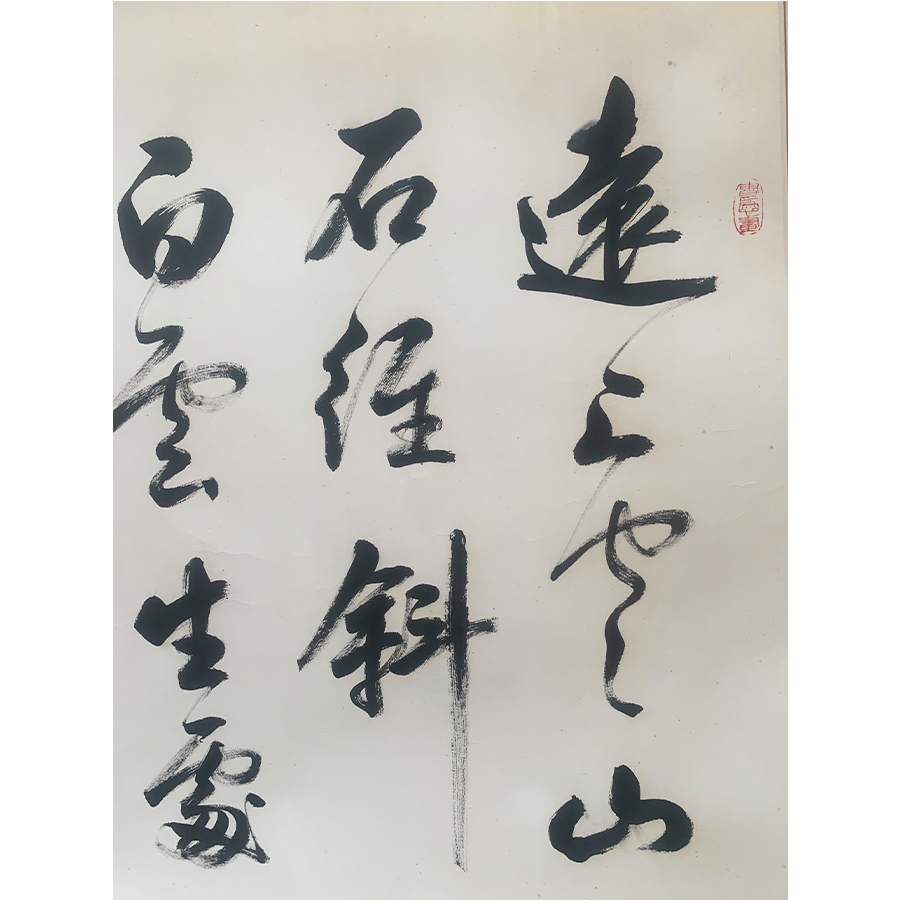 遠上寒山
石徑斜
白雲生處